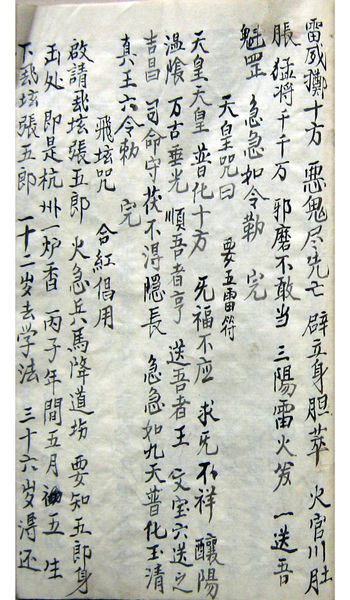 雷威擲十方 惡鬼尽先亡 辟立身胆萃 火官川肚
脹 猛将千千万 邪磨不敢当 三陽雷火发 一送吾
魁罡 急急如令勅 完
天皇咒曰 要五雷符
天皇天皇 普化十方 旡福不应 求旡不祥 釀陽
温隂 万古垂光 順吾者亨 送吾者王 文宝六送之
吉昌 司命守茯不得隱長 急急如九天普化玉清
真王六令勅 完
飛坛咒 合紅倡用
啟請坛張五郎 火急兵馬降道坊 要知五郎身
击处 即是杭州一炉香 丙子年間五月五生
下坛張五郎 一十二岁去学法 三十六岁得还